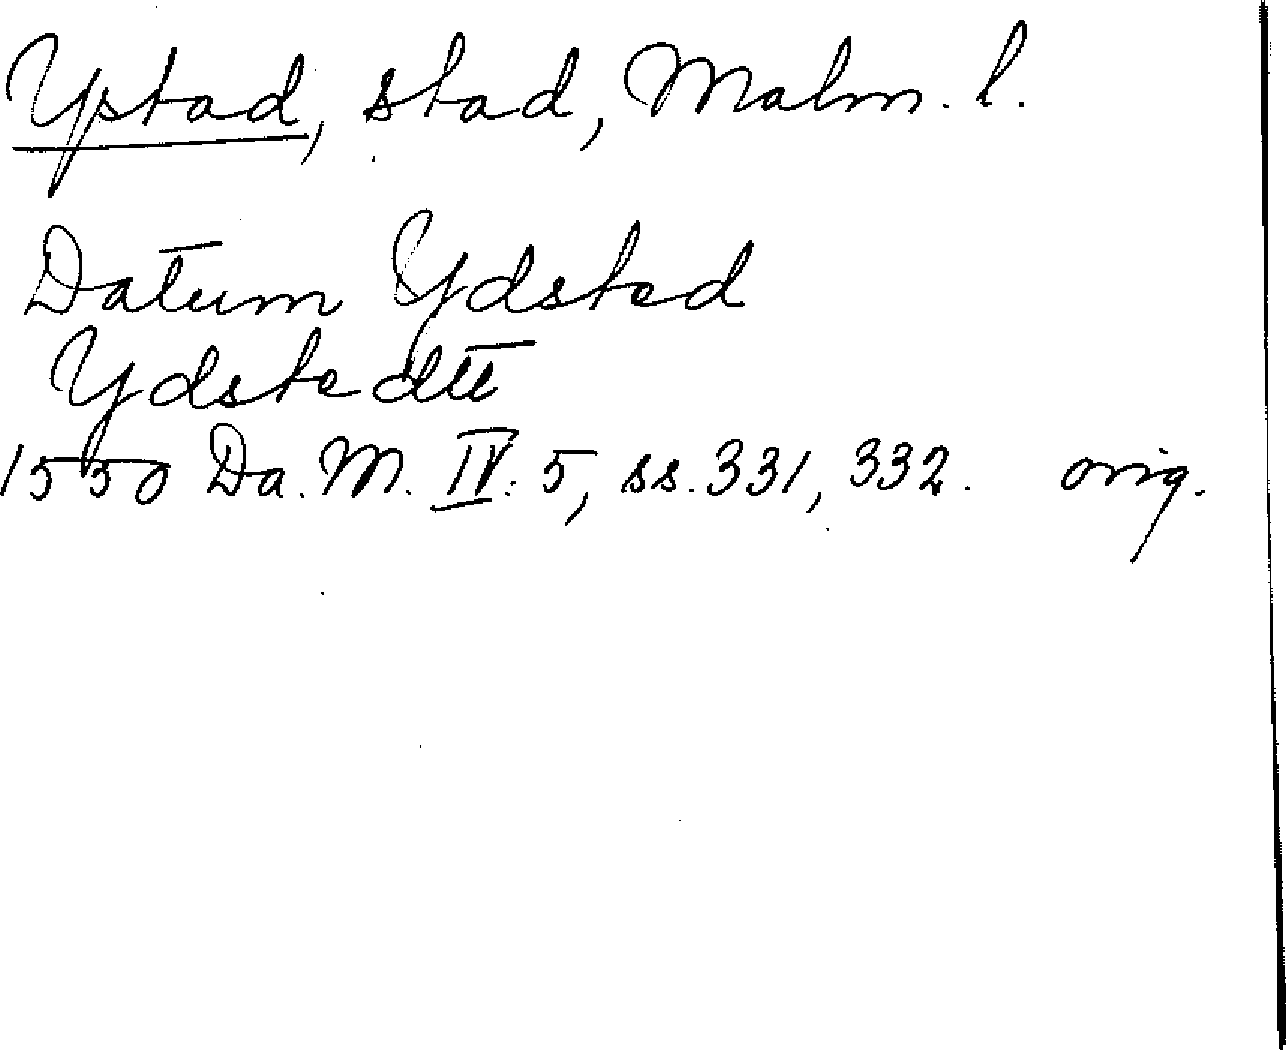 Ystad, stad, Malm. l.
Datum Ydsted
Ydstedtt
1550 Da. M. IV: 5, ss. 331, 332. orig.